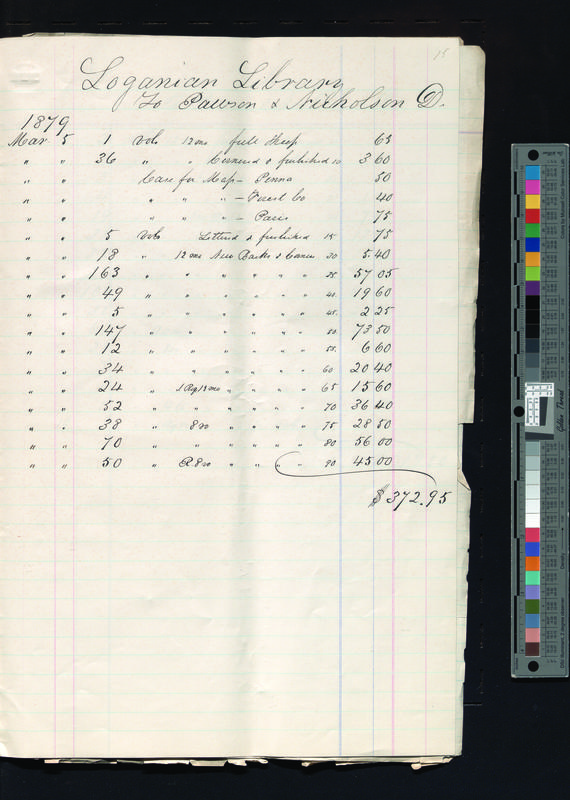 15
Loganian Library
To Pawson & Nicholson Dr.
1879
Mar 5 1 vols 12mo full Sheep 65
" " 36 " " Cornered & finished 10 3 60
" " Case for Map – Penna 50
" " " " " – Forest Co 40
" " " " " – Paris 75
" " 5 Vols Lettered & finished 15 75
" " 18 " 12mo New Backs & Corners 30 5.40
" " 163 " " " " " " 35 57 05
" " 49 " " " " " " 40 19 60
" " 5 " " " " " " 45 2 25
" " 147 " " " " " " 50 73 50
" " 12 " " " " " " 55 6 60
" " 34 " " " " " " 60 20 40
" " 24 " 12mo " " " " 65 15 60
" " 52 " " " " " " 70 36 40
" " 38 " 8vo " " " " 75 28 50
" " 70 " " " " " " 80 56 00
" " 50 " R 8vo " " " " 90 45 00
$372.95